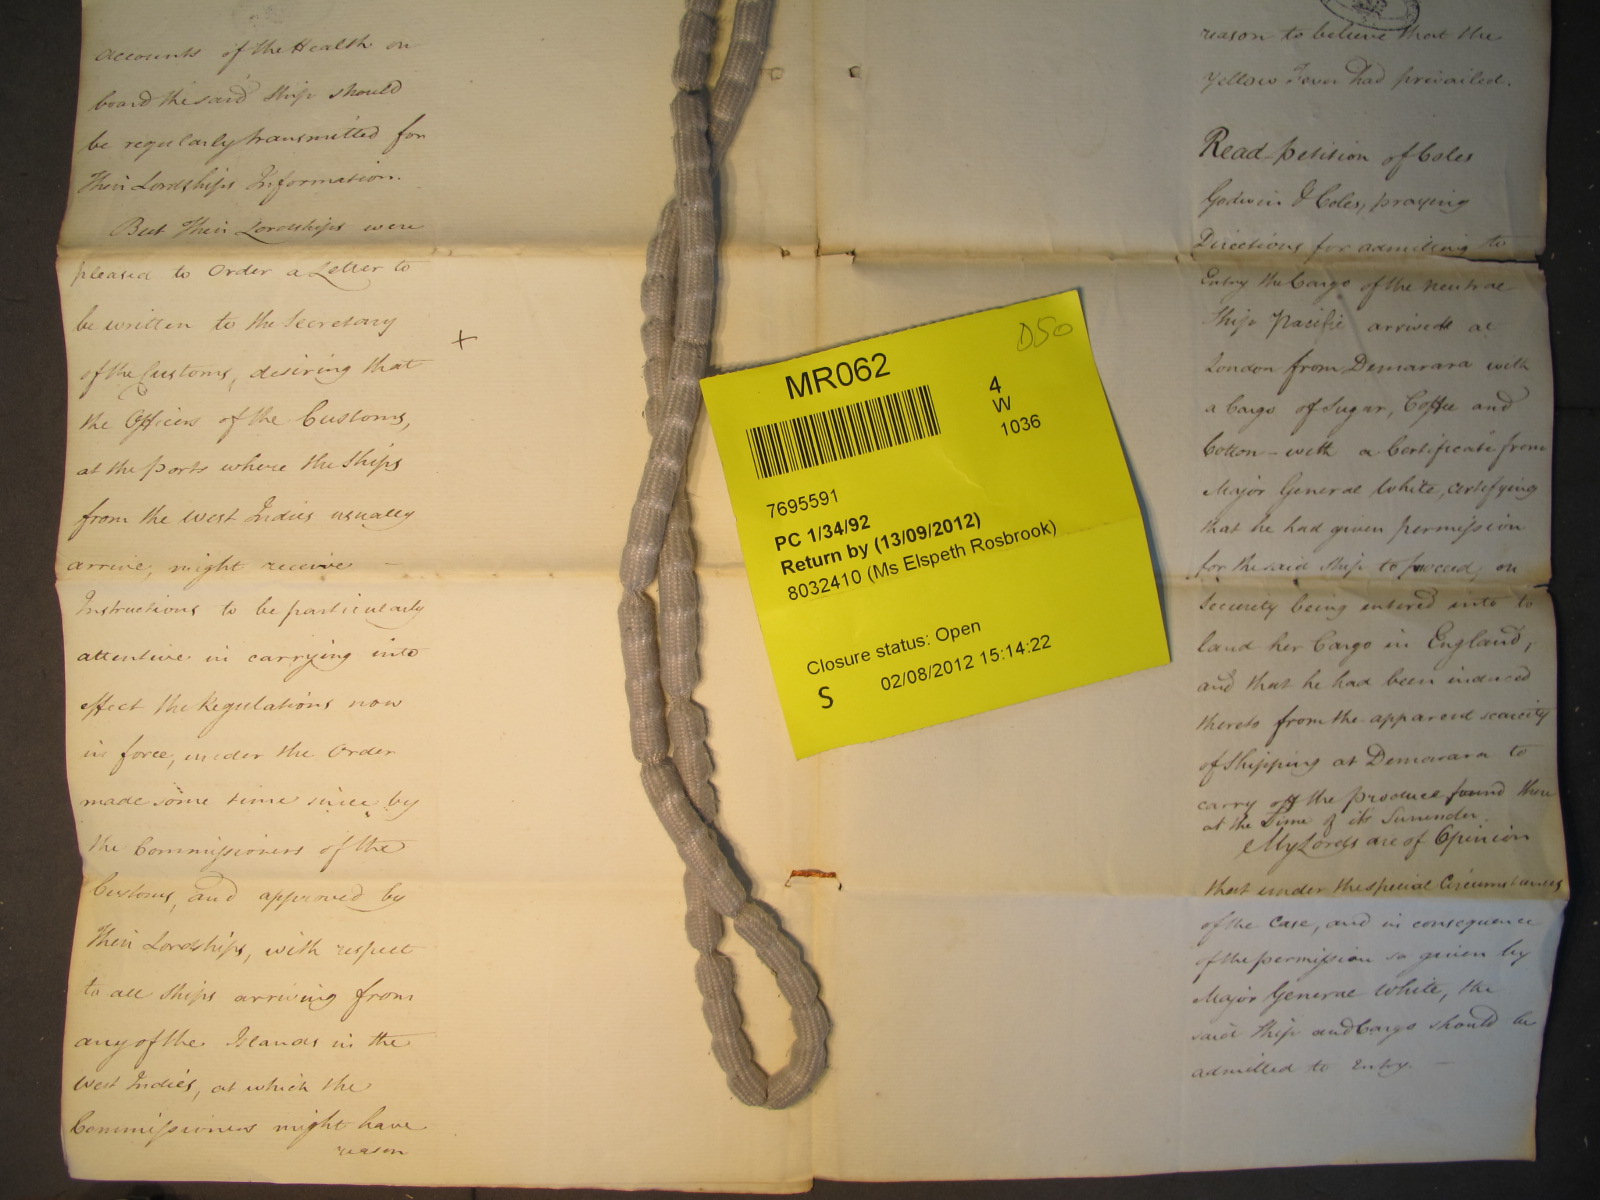 accounts of the Health on
board the said Ship should
be regularly transmitted for
Their Lordships Information.
But Their Lordships were
pleased to Order a Letter to
be written to the Secretary
of the Customs, desiring that
the Officers of the Customs,
at the ports where the Ships
from the West Indies usually
arrive, might receive –
Instructions to be particularly
attentive in carrying into
effect the Regulations now
in force, under the Order
made some time since by
the Commissioners of the
Customs, and approved by
Their Lordships, with respect
to all Ships arriving from
any of the Islands in the
West Indies, at which the
Commissioners might have
reason
+
D50
MR062
4
W
1036
7695591
PC 1/34/92
Return by (13/09/2012)
8032410 (Ms Elspeth Rosbrook)
Closure status: Open
S 02/08/2012 15:14:22
reason to believe that the
Yellow Fever had prevailed.
Read petition of Coles
Godwin & Coles, praying
Directions for admitting to
Entry the Cargo of the neutral
Ship Pacific arrived at
London from Demarara with
a Cargo of Sugar, Coffee and
Cotton – with a Certificate from
Major General White, certifying
that he had given permission
for the said Ship to proceed, on
Security being entered into to
land her Cargo in England,
and that he had been induced
thereto from the apparent scarcity
of Shipping at Demarara to
carry off the produce found there
at the Time of its Surrender.
My Lords are of Opinion
that under the special Circumstances
of the Case, and in consequence
of the permission so given by
Major General White, the
said Ship and Cargo should be
admitted to Entry. –